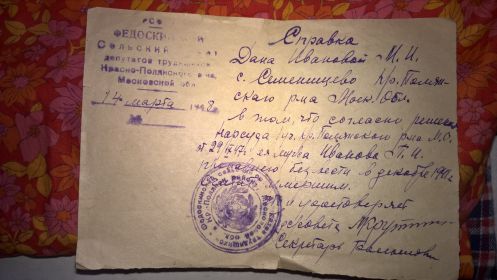 РСФ
ФЕДОСК
Сельский
депутатов трудящихся
Красно-Полянского р-на,
Московской обл.
14 марта 1948
Справка
Дана Ивановой И. И.
с. Сипенищево Кр. Полян-
ского р-на Моск. обл.
в том, что согласно решен
Нарсуда уч. Кр. Полянского р-на М. О.
от 29/VII 47г. её мужа Иванова П. И.
без вести в декабре 1941г.
умершим.
и удостоверяет
совета
Секретарь